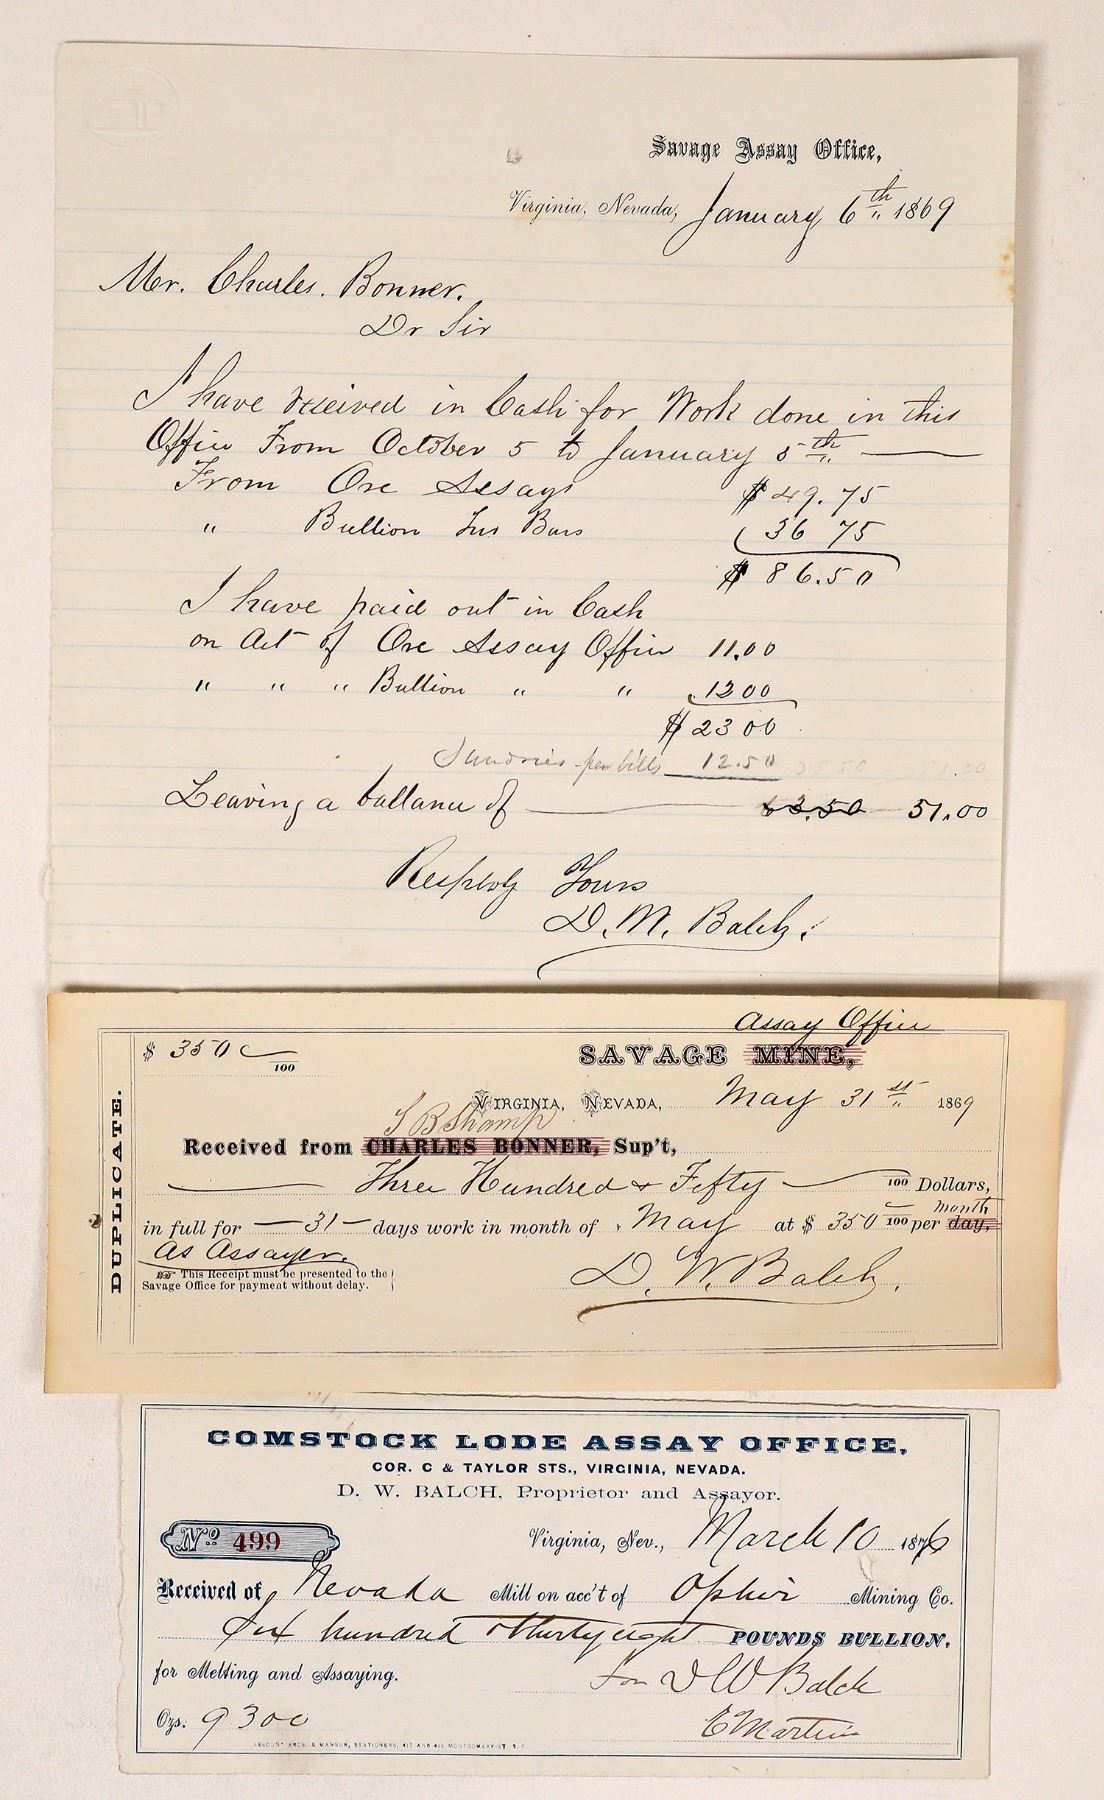 Savage Assay Office,
Virginia, Nevada, January 6th 1869
Mr. Charles. Bonner.
Dr Sir
I have received in Cash for Work done in this
Office From October 5 to January 5th
From Ore Assays $49.75
" Bullion Bars 36 75
$86.50
I have paid out in Cash
on Act of Ore Assay Office 11.00
" " " Bullion " " 12 00
$23 00
Sundries per bills 12.50 35 50
Leaving a ballance of 63.50 51.00
Resptly Yours
D. W. Balch.
Assay Office
$ 350 100
SAVAGE MINE,
VIRGINIA, NEVADA, May 31st 1869
Received from CHARLES BONNER, Sup't,
Three Hundred & Fifty 100 Dollars,
month
in full for 31 days work in month of May at $ 350 100 per day,
As Assayer.
This Receipt must be presented to the
Savage Office for payment without delay.
D. W. Balch.
DUPLICATE.
COMSTOCK LODE ASSAY OFFICE,
COR. C & TAYLOR STS., VIRGINIA, NEVADA.
D. W. BALCH, Proprietor and Assayor.
No 499
Virginia, Nev., March 10 1876
Received of Nevada Mill on acc't of Ophir Mining Co.
Six hundred & thirty eight POUNDS BULLION,
for Melting and Assaying.
For D W Balch
Ozs. 9300
E Martin